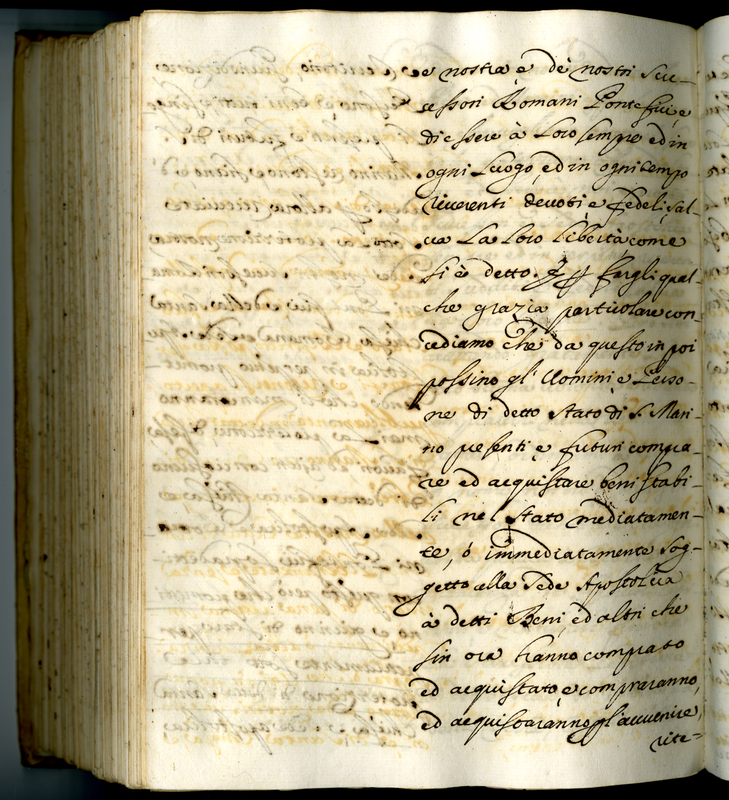 e nostra e de nostri suc-
cessori Romani Pontefici, e
di essere à Loro sempre ed in
ogni Luogo, ed in ogni tempo
riverenti devoti e Fedeli, sal-
va La Loro libertà come
si è detto. E p. fargli qual-
che grazia particolare con-
cediamo Che da questo in poi
possino gl' Uomini e Perso-
ne di detto Stato di S. Mari-
no presenti e futuri compra-
re ed acquistare beni stabi-
li nel Stato mediatamen-
te, ò immediatamente sog-
getto alla Sede Apostolica
à detti Beni, ed altri che
sin ora hanno comprato
ed acquistato e compraranno,
ed acquistaranno gl'avvenire,
rite-